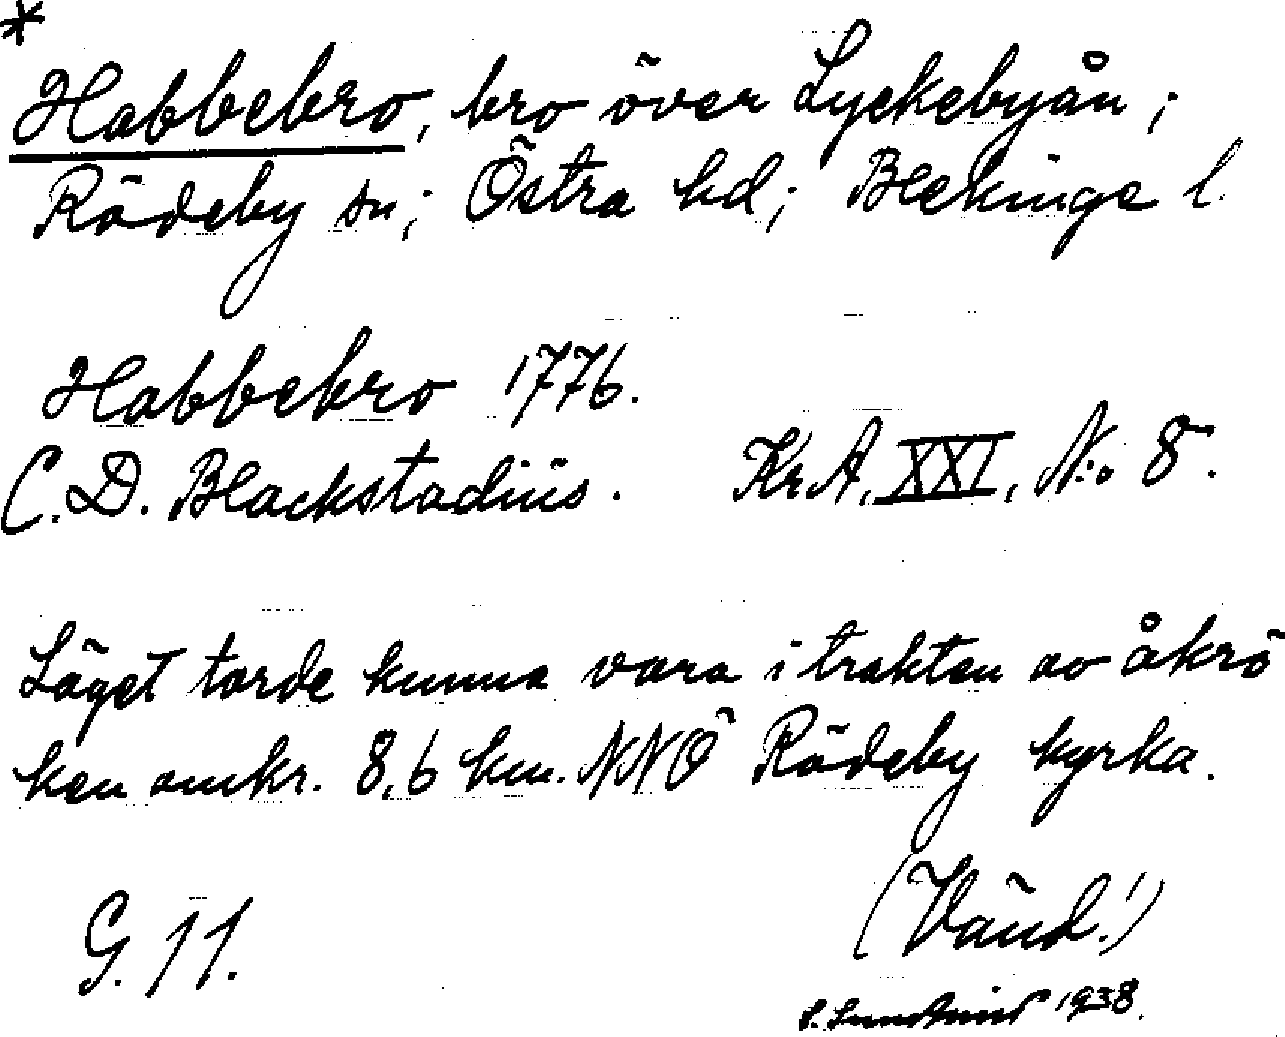 *
Habbebro, bro över Lyckebyån;
Rödeby sn; Östra hd; Blekinge l.
Habbebro 1776.
C. D. Blackstadius. Kr A, XXI, N:o 8.
Läget torde kunna vara i trakten av åkrö
ken omkr. 8,6 km. NNÖ Rödeby kyrka.
(Vänd!)
G. 11.
1938.